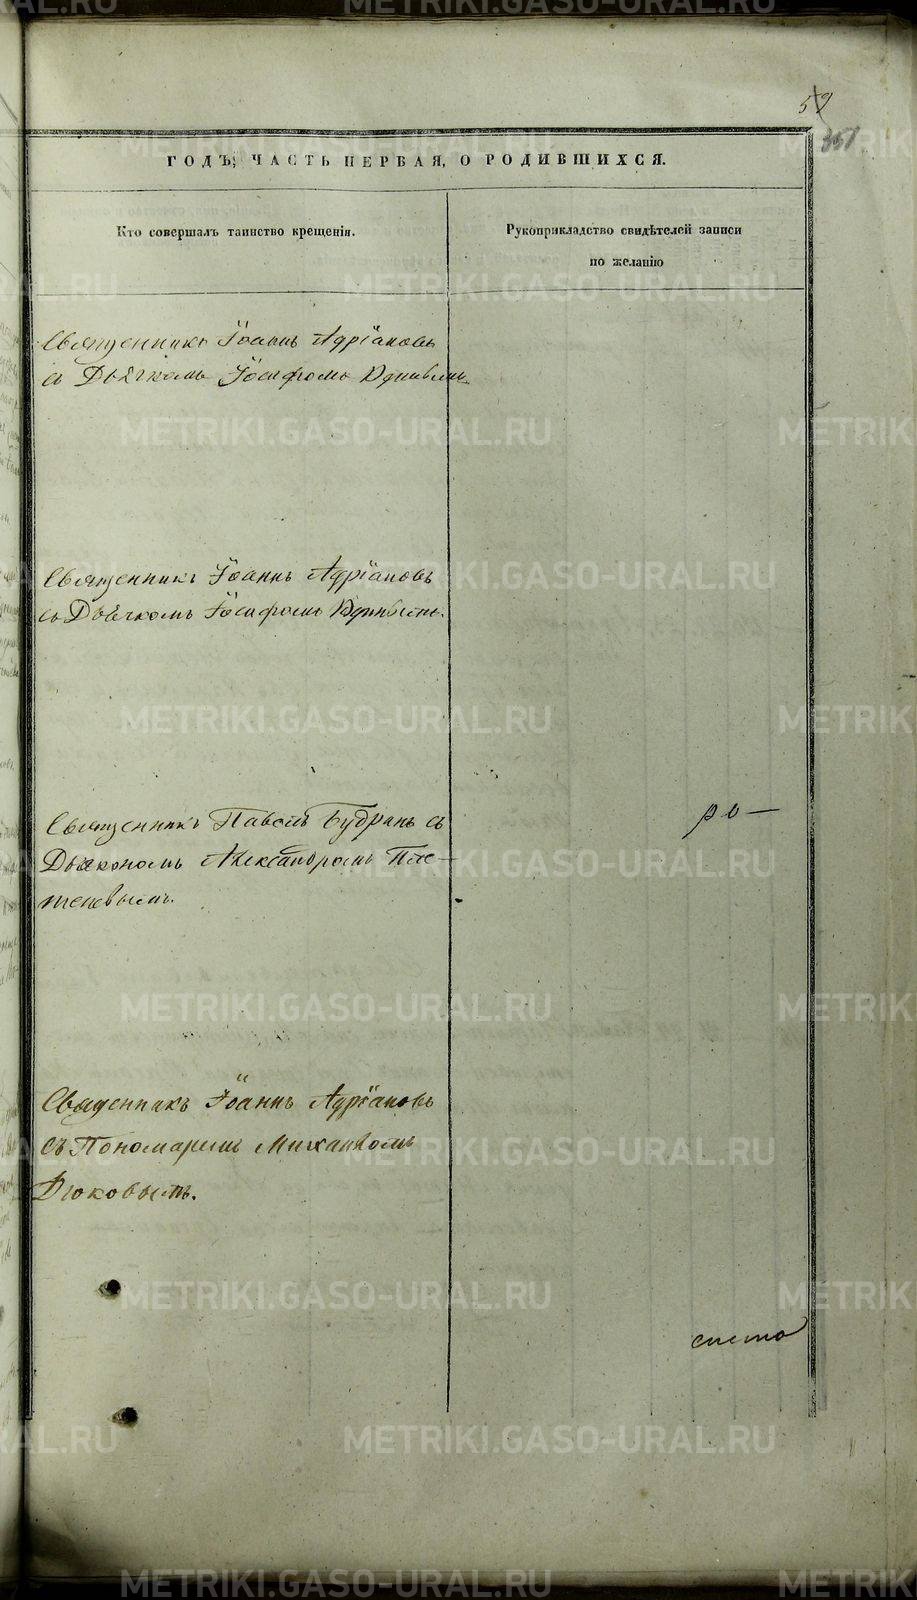 59
351
ГОДЪ, ЧАСТЬ ПЕРВАЯ, О РОДИВШИХСЯ.
Кто совершалъ таинство крещенія.
Рукоприкладство свидѣтелей записи
по желанію
Священникъ Іоаннъ Адріановъ
съ Дьячкомъ Іосифомъ
Священникъ Іоаннъ Адріановъ
съ Дьячкомъ Іосифомъ
Священникъ Павелъ Будринъ съ
Діакономъ Александромъ Пле-
теневымъ.
Священникъ Іоаннъ Адріановъ
съ Пономаремъ Михаиломъ
Дюковымъ.
ро—
METRIKI.GASO-URAL.RU